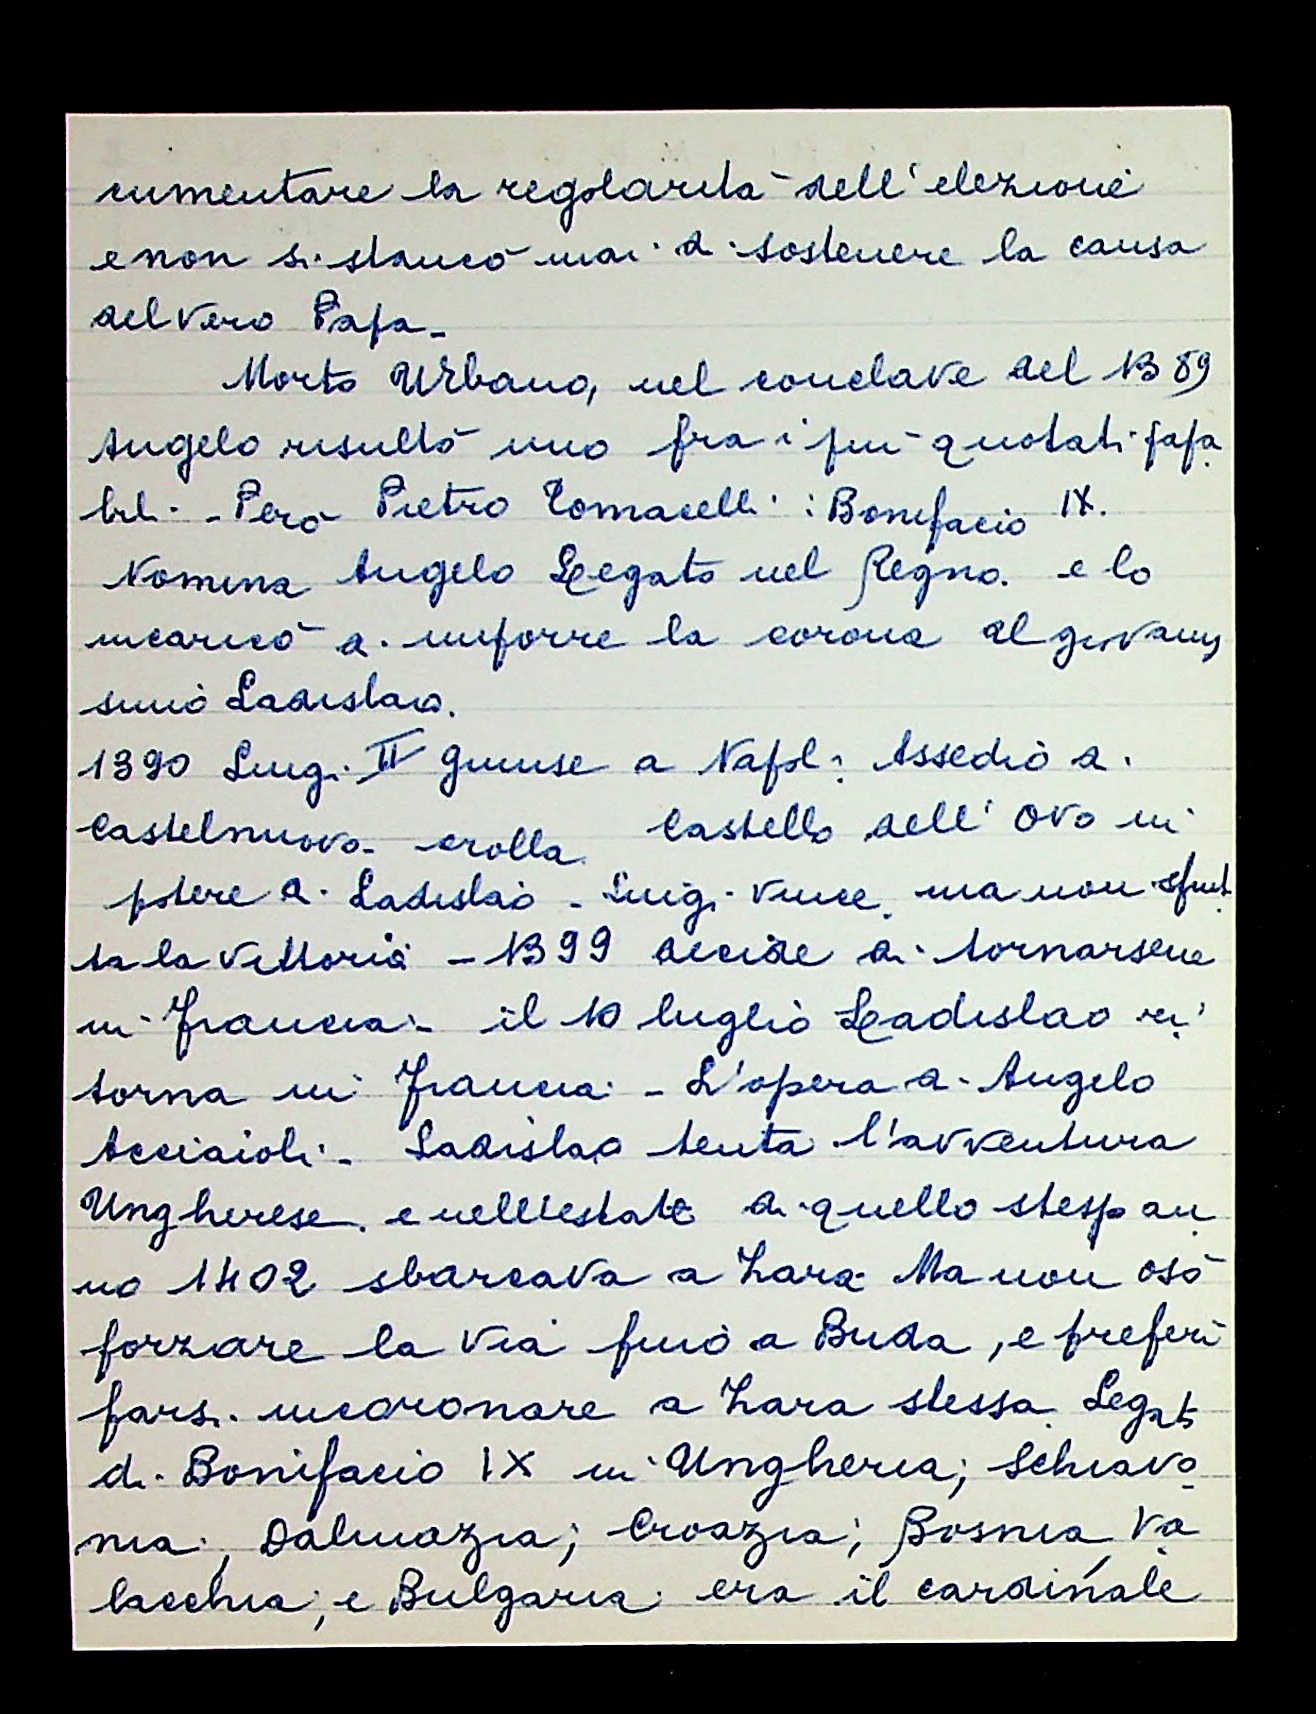 cumentare la regolarità dell'elezione
e non si stancò mai di sostenere la causa
del vero Papa_
Morto Urbano, nel conclave del 1389
Angelo risultò uno fra i più quotati papa
bili - Però Pietro Tomacelli : Bonifacio IX.
Nomina Angelo Legato nel Regno. e lo
incaricò di imporre la corona al giovanis
simo Ladislao.
1390 Luigi II giunse a Napoli Assediò di
Castelnuovo - crolla Castello dell'Ovo in
potere di Ladislao - Luigi vince, ma non sfrut
ta la vittoria - 1399 decide di tornarsene
in Francia - il 10 luglio Ladislao ri
torna in Francia - L'opera di Angelo
Acciaioli - Ladislao tenta l'avventura
Ungherese. e nell'estate di quello stesso an
no 1402 sbarcava a Zara Ma non osò
forzare la via fino a Buda, e preferì
farsi incoronare a Zara stessa Legato
di Bonifacio IX in Ungheria; Schiavo
nia, Dalmazia; Croazia; Bosnia, Va
lacchia; e Bulgaria era il cardinale